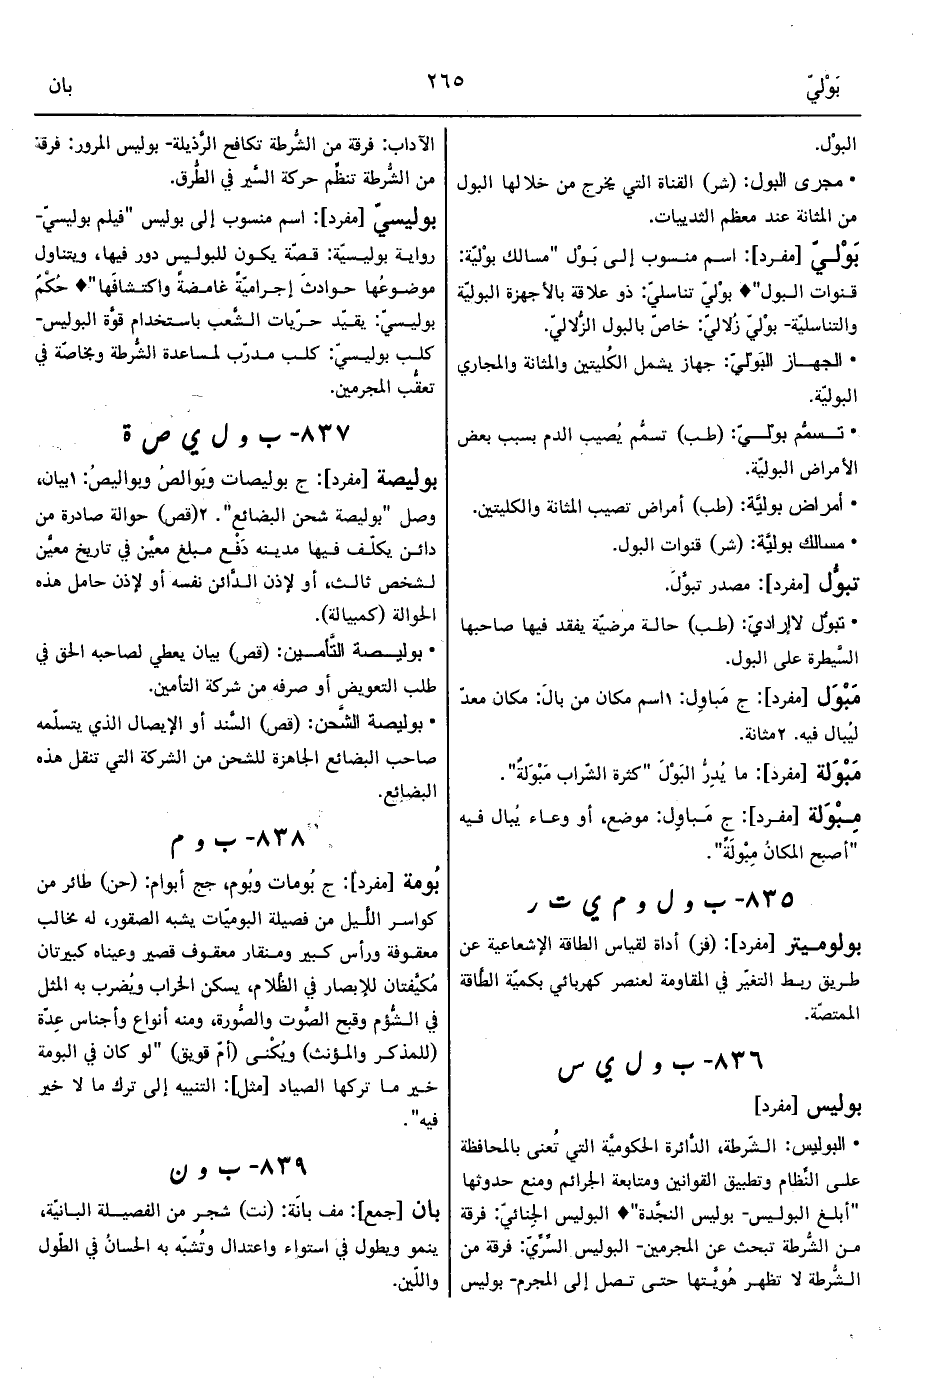 بَوْليّ
٢٦٥
بان
البوْل.
• مجرى البول: (شر) القناة التي يخرج من خلالها البول
من المثانة عند معظم الثدييات.
بَوْليّ [مفرد]: اسم منسوب إلى بَوْل "مسالك بوْليّة:
قنوات البول"♦ بوْليّ تناسليّ: ذو علاقة بالأجهزة البوليّة
والتناسليّة- بوْليّ زُلاليّ: خاصّ بالبول الزُّلاليّ.
• الجهاز البَوْليّ: جهاز يشمل الكُليتين والمثانة والمجاري
البوليّة.
• تسمُّم بوليّ: (طب) تسمُّم يُصيب الدم بسبب بعض
الأمراض البوليّة.
• أمراض بوليَّة: (طب) أمراض تصيب المثانة والكليتين.
• مسالك بوليَّة: (شر) قنوات البول.
تبوُّل [مفرد]: مصدر تبوَّلَ.
• تبوُّل لاإراديّ: (طب) حالة مرضيّة يفقد فيها صاحبها
السَّيطرة على البول.
مَبْوَل [مفرد]: ج مَباوِل: ١اسم مكان من بالَ: مكان معدّ
ليُبال فيه. ٢مثانة.
مَبْوَلة [مفرد]: ما يُدِرُّ البَوْلَ "كثرة الشّراب مَبْوَلةٌ".
مِبْوَلة [مفرد]: ج مَباوِل: موضع، أو وعاء يُبال فيه
"أصبح المكانُ مِبْوَلَةً".
٨٣٥- ب و ل و م ي ت ر
بولوميتر [مفرد]: (فز) أداة لقياس الطاقة الإشعاعية عن
طريق ربط التغيّر في المقاومة لعنصر كهربائي بكميّة الطّاقة
الممتصّة.
٨٣٦- ب و ل ي س
بوليس [مفرد]
• البوليس: الشّرطة، الدَّائرة الحكوميَّة التي تُعنى بالمحافظة
على النِّظام وتطبيق القوانين ومتابعة الجرائم ومنع حدوثها
"أبلغ البوليس- بوليس النجْدة"♦ البوليس الجِنائيّ: فرقة
من الشّرطة تبحث عن المجرمين- البوليس السِّرِّيّ: فرقة من
الشُّرطة لا تظهر هُويَّتها حتى تصل إلى المجرم- بوليس
الآداب: فرقة من الشُّرطة تكافح الرَّذيلة- بوليس المرور: فرقة
من الشُّرطة تنظِّم حركة السَّير في الطُّرق.
بوليسيّ [مفرد]: اسم منسوب إلى بوليس "فيلم بوليسيّ-
رواية بوليسيّة: قصّة يكون للبوليس دور فيها، ويتناول
موضوعُها حوادثَ إجراميّةً غامضةً واكتشافَها"♦ حُكْمٌ
بوليسيّ: يقيّد حريّات الشَّعب باستخدام قوَّة البوليس-
كلب بوليسيّ: كلب مدرّب لمساعدة الشّرطة وبخاصّة في
تعقُّب المجرمين.
٨٣٧- ب و ل ي ص ة
بوليصة [مفرد]: ج بوليصات وبَوالصُ وبواليصُ: ١بيان،
وصل "بوليصة شحن البضائع". ٢(قص) حوالة صادرة من
دائن يكلّف فيها مدينه دَفْع مبلغ معيَّن في تاريخ معيَّن
لشخص ثالث، أو لإذن الدّائن نفسه أو لإذن حامل هذه
الحوالة (كمبيالة).
• بوليصة التَّأمين: (قص) بيان يعطي لصاحبه الحق في
طلب التعويض أو صرفه من شركة التأمين.
• بوليصة الشَّحن: (قص) السَّند أو الإيصال الذي يتسلّمه
صاحب البضائع الجاهزة للشحن من الشركة التي تنقل هذه
البضائع.
٨٣٨- ب و م
بُومة [مفرد]: ج بُومات وبُوم، جج أبوام: (حن) طائر من
كواسر اللَّيل من فصيلة البوميّات يشبه الصقور، له مخالب
معقوفة ورأس كبير ومنقار معقوف قصير وعيناه كبيرتان
مُكيَّفتان للإبصار في الظَّلام، يسكن الخراب ويُضرب به المثل
في الشُّؤم وقبح الصَّوت والصُّورة، ومنه أنواع وأجناس عِدّة
(للمذكر والمؤنث) ويُكْنى (أمّ قويق) "لو كان في البومة
خير ما تركها الصياد [مثل]: التنبيه إلى ترك ما لا خير
فيه".
٨٣٩- ب و ن
بان [جمع]: مف بانَة: (نت) شجر من الفصيلة البانيَّة،
ينمو ويطول في استواء واعتدال وتُشبَّه به الحسانُ في الطّول
واللّين.